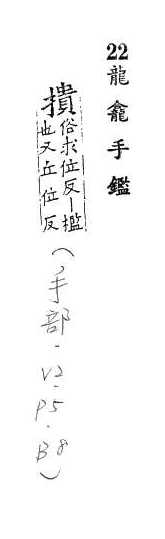 22龍龕手鑑
擃俗求位反｜㩜
也又丘位反
(手部·V2·P5·B8)